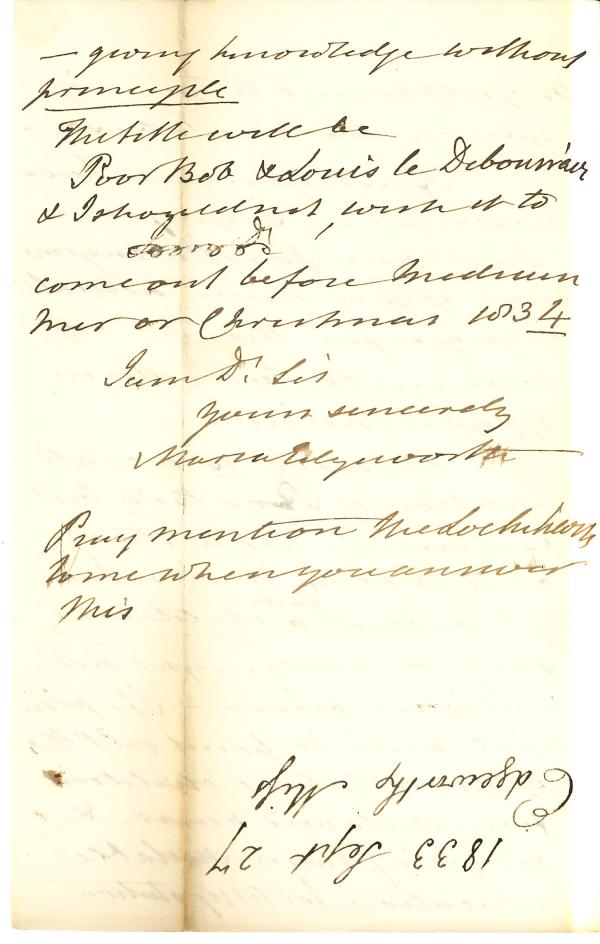 – giving knowledge without
principle
The title will be
Poor Bob & Louis le Debonnair
& I should not, wish it to
come out before Midsum
mer or Christmas 1834
I am Dr. Sir
yours sincerely
Maria Edgeworth
Pray mention the Lockharts
to me when you answer
this
Edgeworth Miss
1833 Sept 27